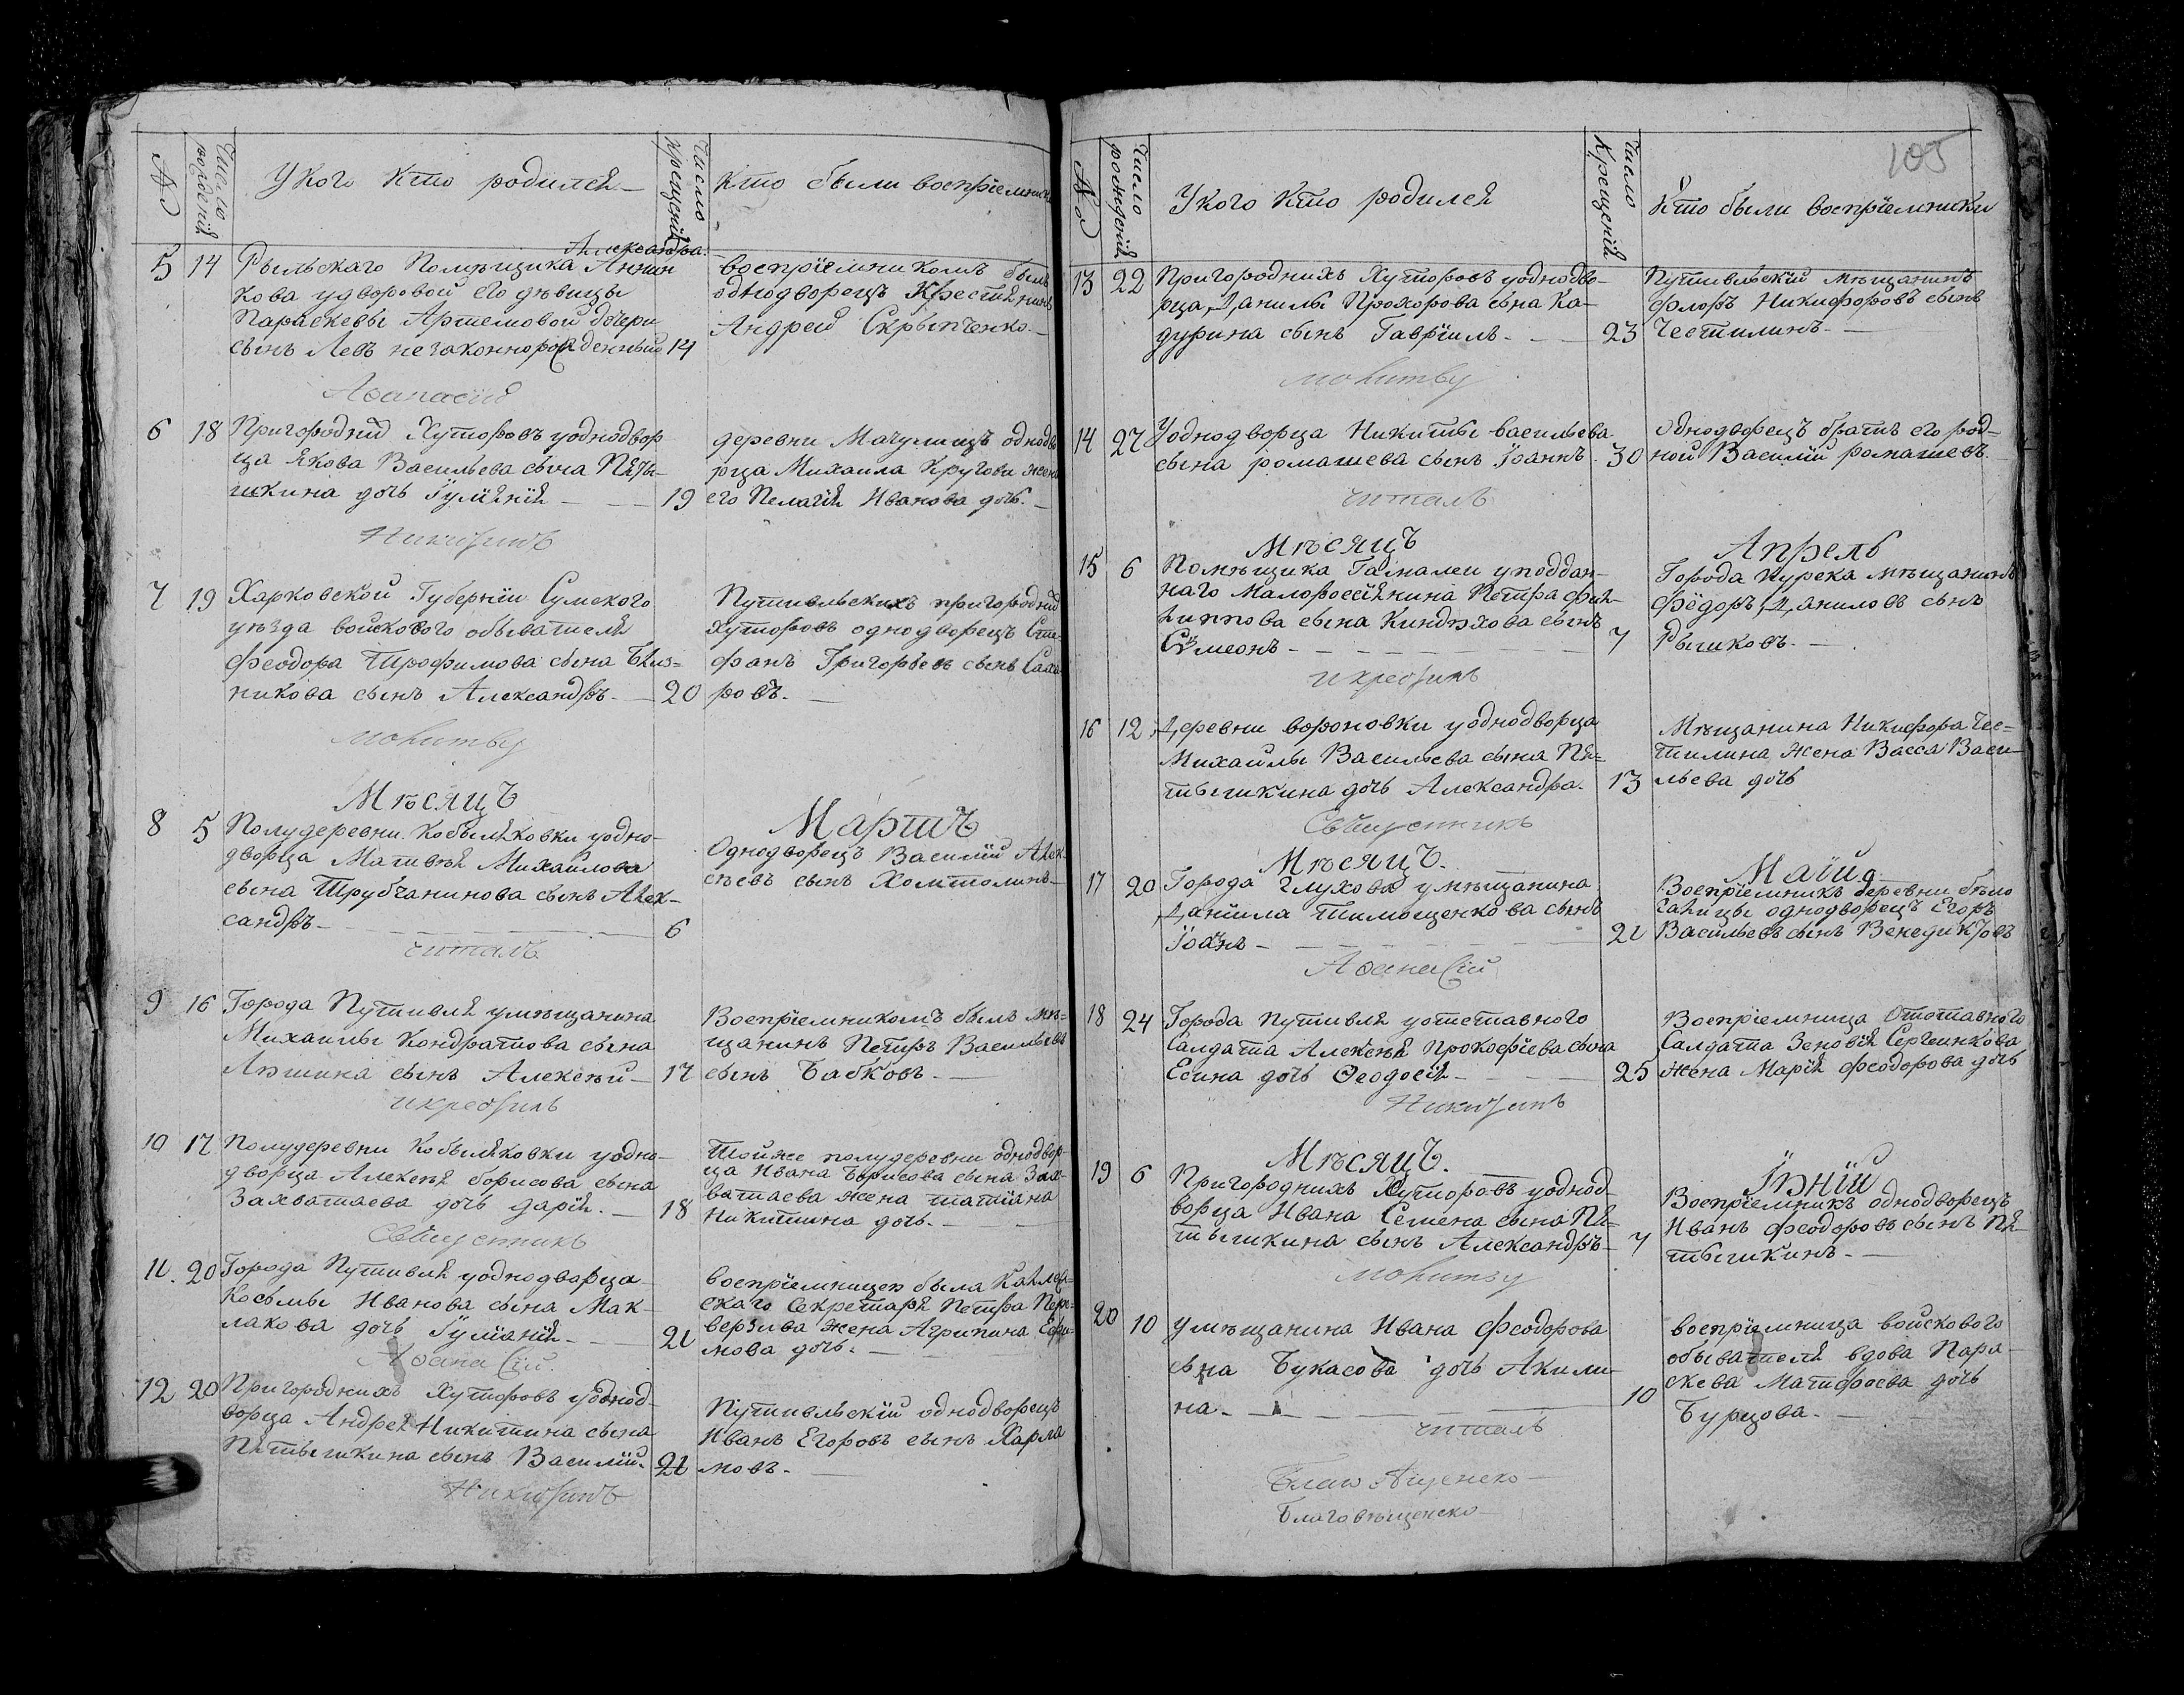 №
Число рожденій
У кого кто родился
Число крещеній
кто были воспріемники
5
14
Александра
Рыльскаго Помѣщика Аннин
кова удворовой его дѣвицы
Параскевы Артемовой дочери
сынъ Левъ незаконнорожденный
14
воспріемникомъ былъ
однодворецъ Крестьянинъ
Андрей Скрыпченко
Аѳанасій
6
18
Пригородних Хуторовъ уоднодвор
ца Якова Васильева сына Пяты-
шкина дочь Іуліянія
19
деревни Мачулищъ однодво
рца Михаила Кругови жена
его Пелагія Иванова дочь.
Никитинъ
7
19
Харковской Губерніи Сумского
уѣзда войскового обывателя
Феодора Трофимова сына Близ=
никова сынъ Александръ.
20
Путивльскихъ пригородних
хуторовъ однодворецъ Сте-
фанъ Григорьевъ сынъ Сахо
ровъ.
молитву
Мѣсяцъ
Мартъ
8
5
Полудеревни Кобыляковки уодно-
дворца Матвѣя Михайлова
сына Трубчанинова сынъ Алек-
сандръ
6
Однодворецъ Василій Алек-
сѣевъ сынъ Холтолинъ
читалъ
9
16
Города Путивля умѣщанина
Михаилы Кондратова сына
Лѣшина сынъ Алексѣй
17
Воспріемникомъ былъ мѣ-
щанинъ Петръ Васильевъ
сынъ Бабковъ.
икрестилъ
10
17
Полудеревни Кобыляковки уодно-
дворца Алексѣя борисова сына
Захватаева дочь дарія.
18
Тойже полудеревни однодвор-
ца Ивана Борисова сына Зах-
ватаева жена татіана
Никитина дочь.
Священникъ
11.
20
Города Путивля уоднодворца
Косьмы Иванова сына Мак-
лакова дочь Іуліанія
21
воспріемницею была Каллеж-
скаго Секретаря Петра Пере-
верзива жена Агрипина Ефи-
мова дочь.
Аѳанасій.
12
20
Пригородних Хуторовъ уоднод-
ворца Андрея Никитина сына
Пятышкина сынъ Василій.
21
Путивльскій однодворецъ
Иванъ Егоровъ сынъ Харла
мовъ.
Никитинъ
105
№
Число рожденій
У кого кто родился
Число Крещеній
Кто были воспріемники
13
22
Пригородних Хуторовъ уоднодво-
рца Данилы Прохорова сына Ка-
дурина сынъ Гавріилъ.
23
Путивльскій мѣщанинъ
Флоръ Никифоровъ сынъ
Честилинъ.
молитву
14
27
Уоднодворца Никиты васильева
сына ромашева сынъ Іоаннъ
30
Однодворецъ братъ его род=
ной Василій ромашевъ.
читалъ
Мѣсяцъ
Апрель
15
6
Помѣщика Гамалеи уподдан-
наго Малороссіянина Петра Фил-
липпова сына Киндѣхова сынъ
Сѵмеонъ
7
Города Курска мѣщанинъ
Федоръ Даниловъ сынъ
Рышковъ.
икрестилъ
16
12
Деревни вороновки уоднодворца
Михаилы Васильева сына Пя=
тышкина дочь Александра.
13
Мѣщанина Никифора Чес=
тилина жена Васса Васи-
льева дочь
Священникъ
Мѣсяцъ.
Маій
17
20
Города Глухова умѣщанина
Даніила Тимошенкова сынъ
Іоанъ
21
Воспріемникъ деревни бѣло
галицы однодворецъ Егоръ
Васильевъ сынъ Венедиктовъ
Аѳанасій
18
24
Города Путивля уотставного
Салдата Алексѣя Прокофіева сына
Есина дочь Ѳеодосія
25
Воспріемница Отставного
Салдата Зеновія Сергеинкова
жена Марія Феодорова дочь
Никитинъ
Мѣсяцъ.
Іюній
19
6
Пригородних Хуторовъ уоднод-
ворца Ивана Семена сына Пя-
тышкина сынъ Александръ
7
Воспріемникъ однодворецъ
Иванъ Феодоровъ сынъ Пя-
тышкинъ.
молитву
20
10
умѣщанина Ивана Феодорова
сына Букасова дочь Акили-
на.
10
воспріемница войскового
обывателя вдова Пара-
скева Матфеева дочь
Бурцова.
читалъ
Благовѣщенско